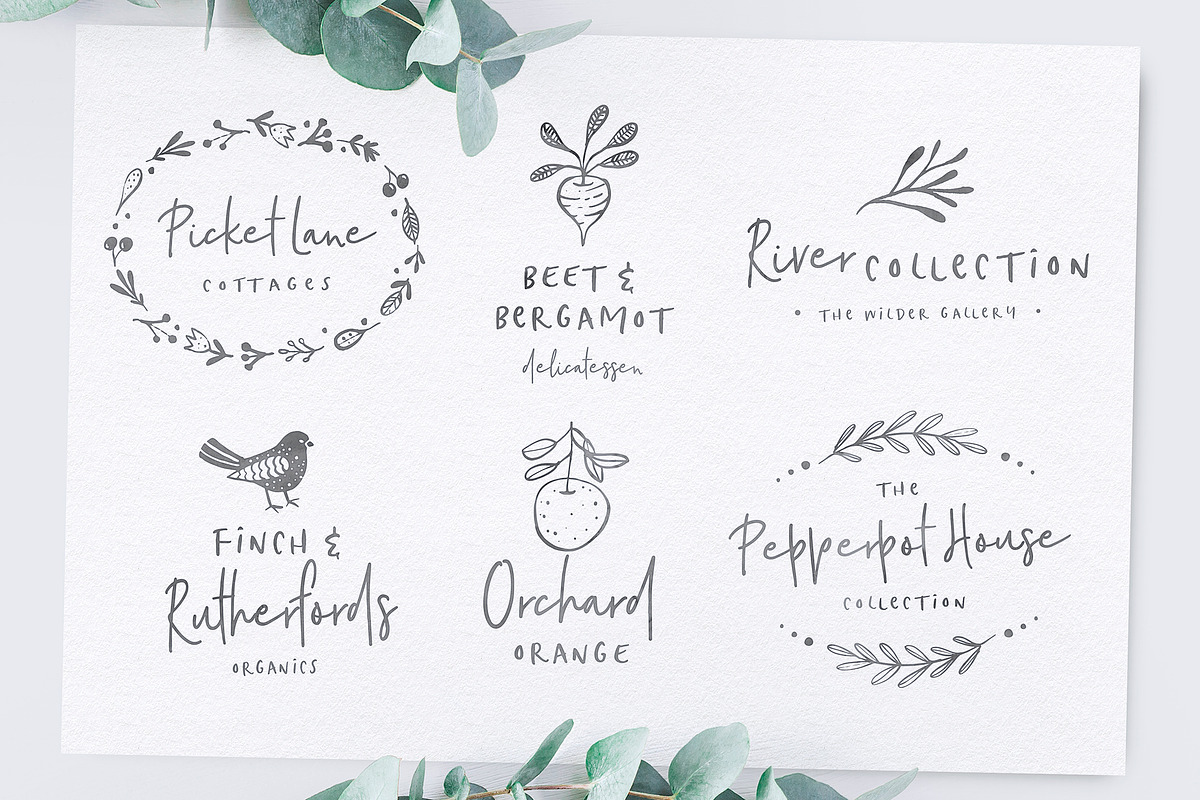 Picket Lane
COTTAGES
BEET &
BERGAMOT
delicatessen
River COLLECTION
• THE WILDER GALLERY •
FINCH &
Rutherfords
ORGANICS
Orchard
ORANGE
THE
Pepperpot House
COLLECTION